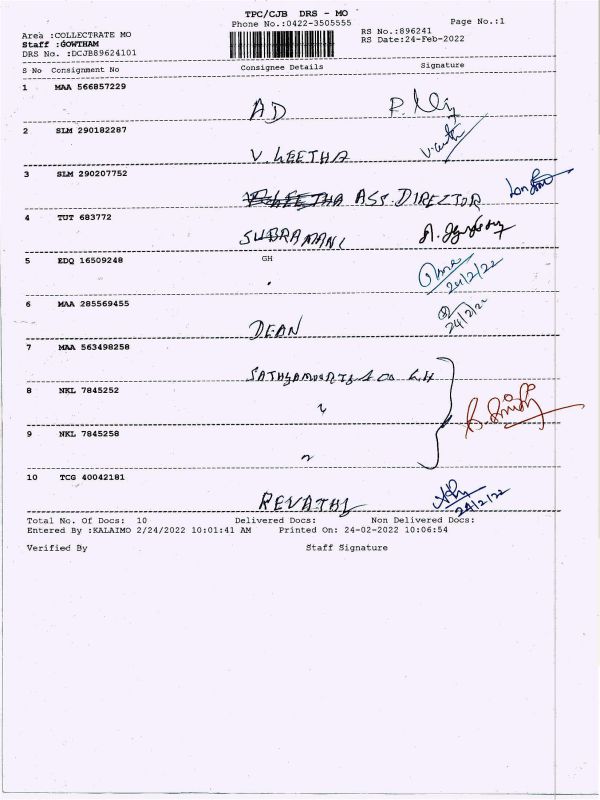 TPC/CJB DRS - MO
Phone No.:0422-3505555
Page No.:1
Area :COLLECTRATE MO
RS No.:896241
Staff :GOWTHAM
RS Date:24-Feb-2022
DRS No. :DCJB89624101
S No Consignment No Consignee Details Signature
1 MAA 566857229
AD
2 SLM 290182287
V. GEETHA
3 SLM 290207752
ASS. DIRECTOR
4 TUT 683772
SUBRAMANI
5 EDQ 16509248 GH
24/2/22
6 MAA 285569455
DEAN 24/2/22
7 MAA 563498258
& CO
8 NKL 7845252
"
9 NKL 7845258
"
10 TCG 40042181
REVATHI 24/2/22
Total No. Of Docs: 10 Delivered Docs: Non Delivered Docs:
Entered By :KALAIMO 2/24/2022 10:01:41 AM Printed On: 24-02-2022 10:06:54
Verified By Staff Signature